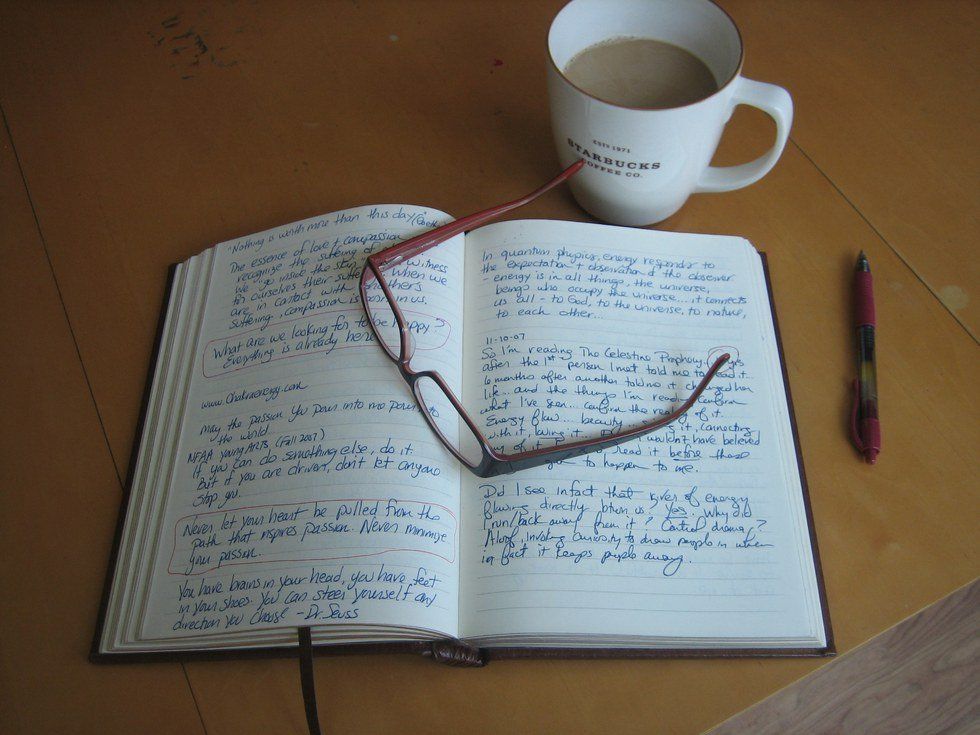 ESTD 1971
STARBUCKS
COFFEE CO.
"Nothing is worth more than this day"
The essence of love + compassion
recognize the suffering of witness
We "go inside the
to ourselves their when we
are in contact with another's
suffering, compassion is born in us.
What are we looking for to be happy?
Everything is already here
www.Chakraenergy.com
may the passion you pour into me pour
the world.
NFAA young ARTS (Fall 2007)
If you can do something else, do it
But if you are driven, don't let anyone
stop you.
Never let your heart be pulled from the
path that inspires passion. Never minimize
your passion.
You have brains in your head, you have feet
in your shoes. You can steer yourself any
direction you choose - Dr. Seuss
In quantum physics, energy responds to
the expectation + observation of the observer
- energy is in all things, the universe,
beings who occupy the universe... it connects
us all - to God, to the universe, to nature,
to each other...
11-10-07
So I'm reading The Celestine Prophecy.
after the 1st person I met told me to read it...
6 months after another told me it changed her
life... and the things I'm read confirm
what I've seen... confirm the reality of it.
Energy flow... beauty... it, connecting
with it, it... wouldn't have believed
any of it read it before these
to happen to me.
Did I see in fact that of energy
flowing directly us, Yes. Why did
I run/back away from it? Control drama?
Aloof, curiosity to draw people in when
in fact it keeps people away.